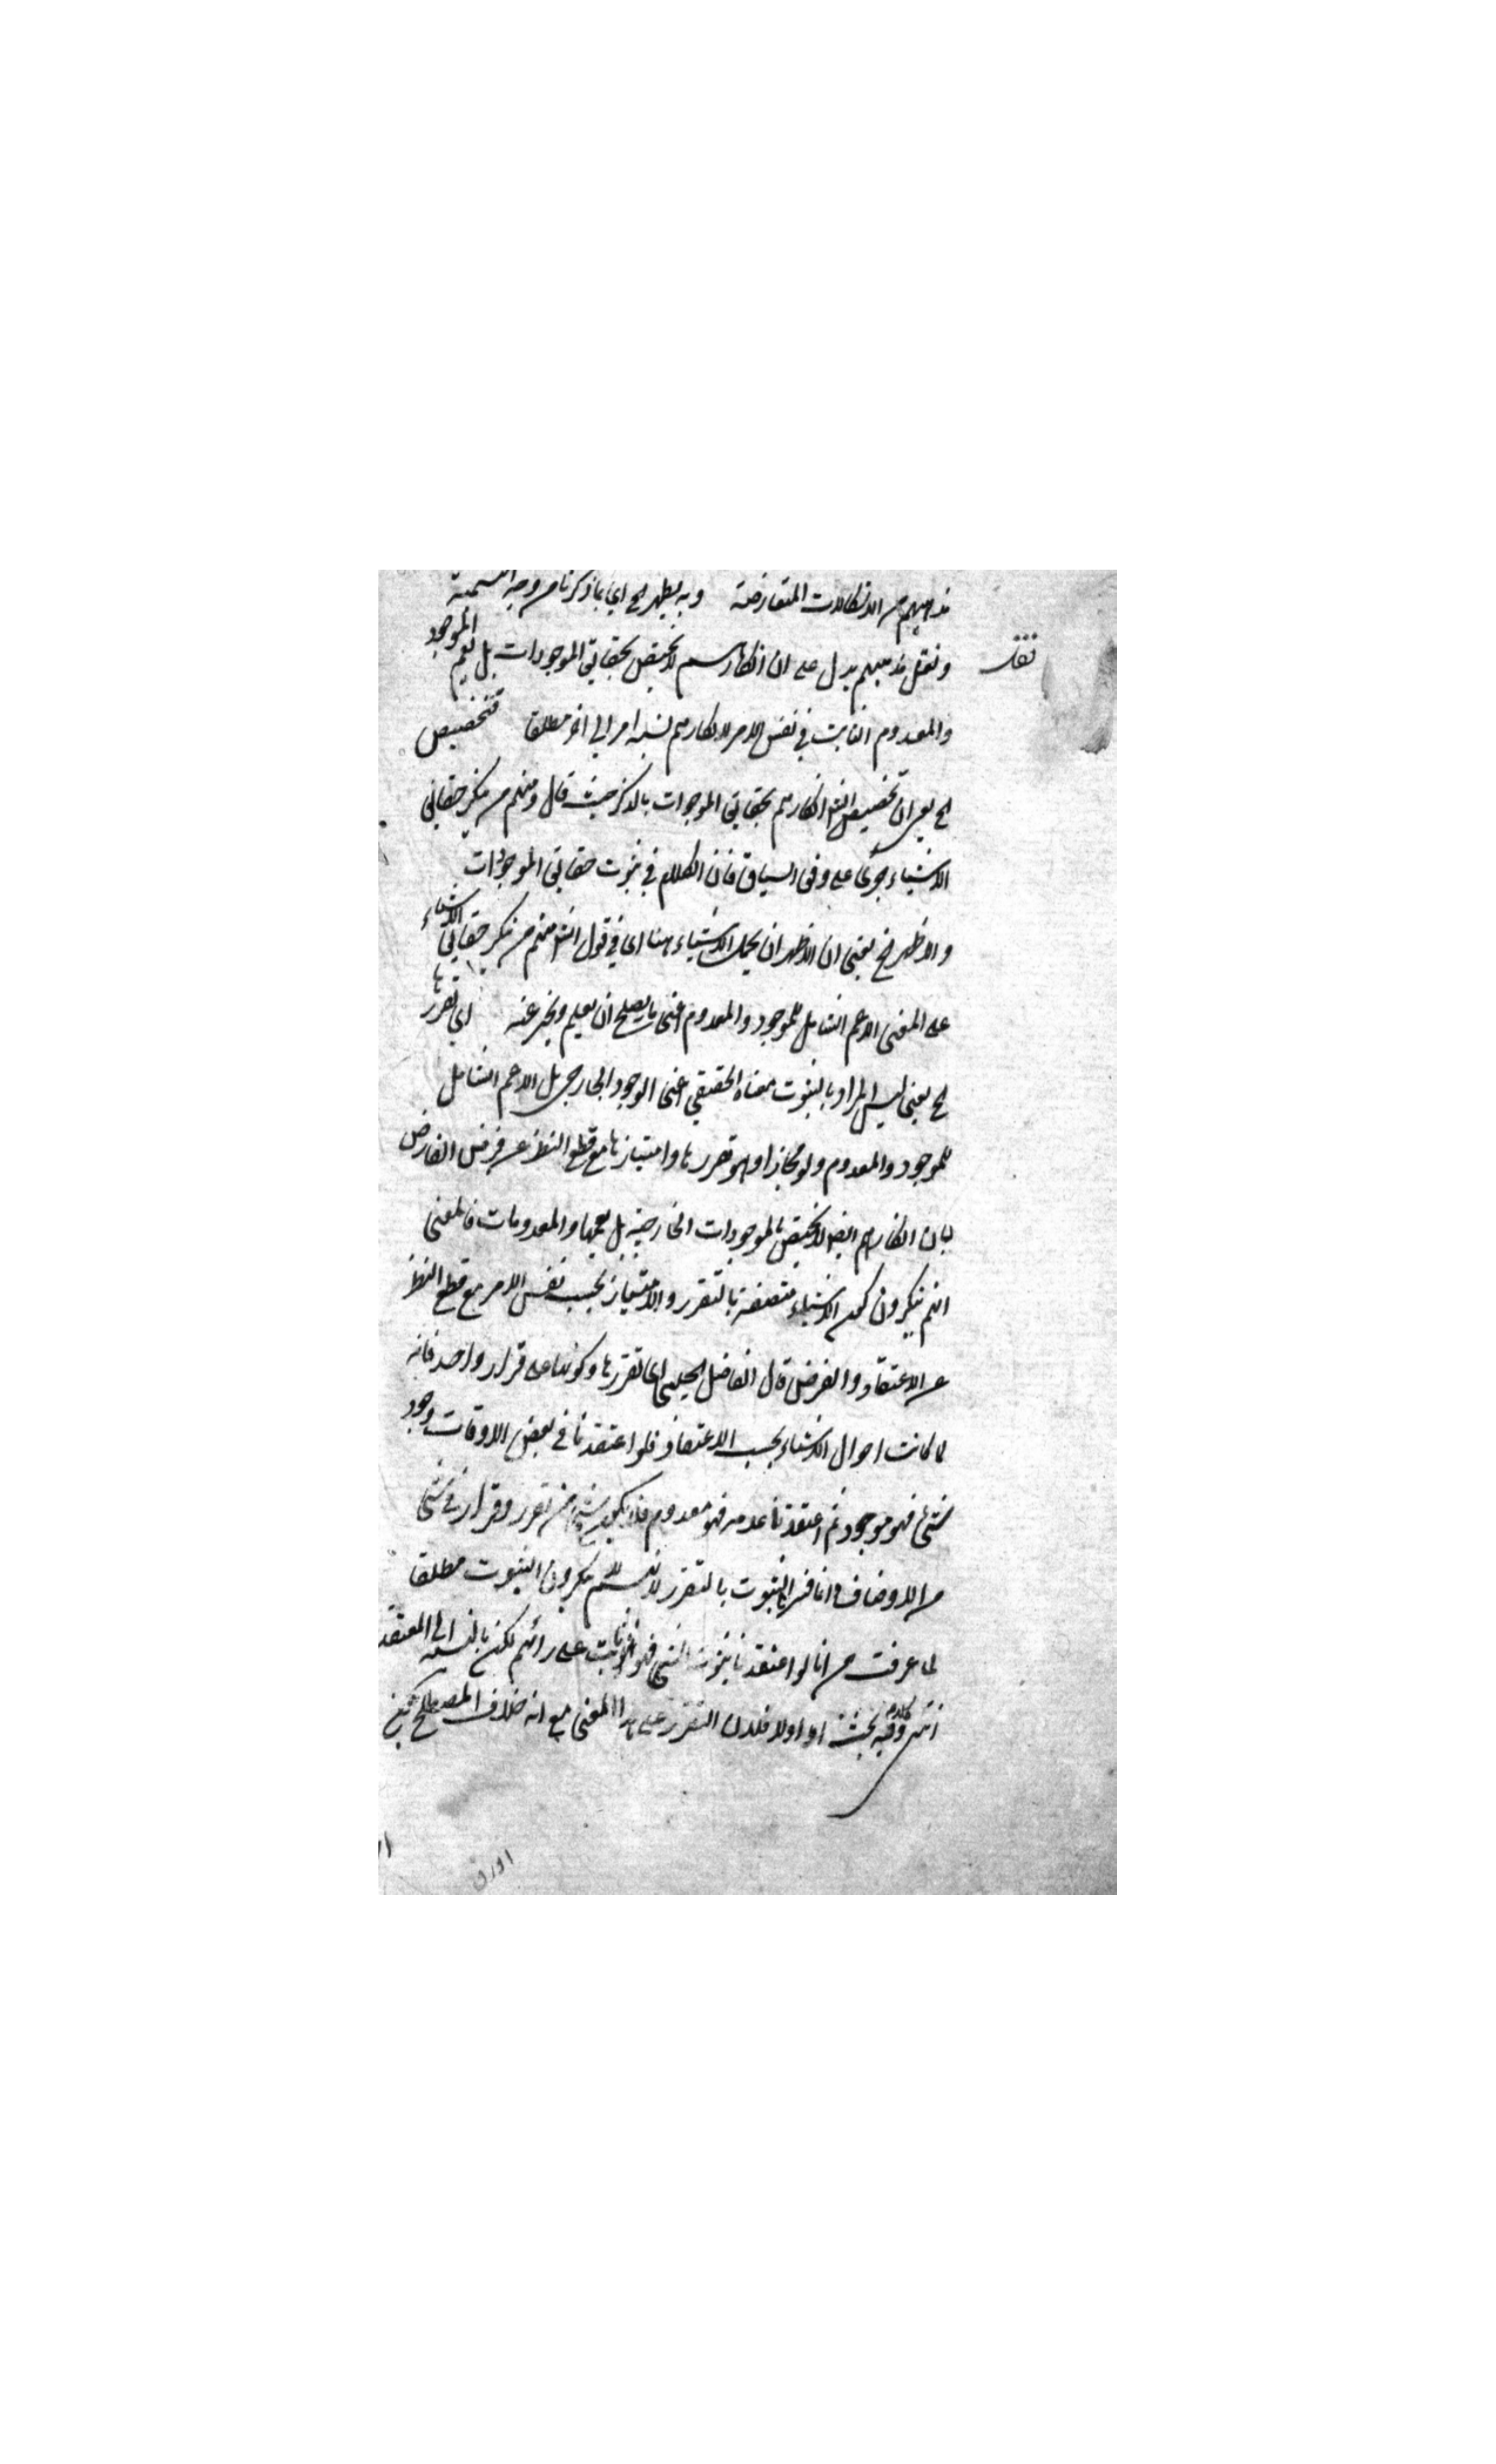 مذهبهم من الاشكالات المتعارضة وبه يظهر الخ اي بما ذكرنا من وجه التسمية
نقل
ونقل مذهبهم يدل على ان انكارهم لا يختص بحقايق الموجودات بل يعم الموجود
والمعدوم الثابت في نفس الامر لانكارهم نسبة امر الى اخر مطلقا فتخصيص
الخ يعنى ان تخصيص الش انكارهم بحقايق الموجوات بالذكر حيث قال ومنهم من ينكر حقايق
الاشياء جرى على وفق السياق فان الكلام في ثبوت حقايق الموجودات
والاظهر الخ يعنى ان الاظهر ان يحمل الاشياء هنا اى في قول الش منهم من ينكر حقايق الاشياء
على المعنى الاعم الشامل للموجود والمعدوم اعنى ما يصلح ان يعلم ويخبر عنه اى تقررها
الخ يعنى ليس المراد بالثبوت معناه الحقيقي اعنى الوجود الخارجى بل الاعم الشامل
للموجود والمعدوم ولو مجازا وهو تقررها وامتيازها مع قطع النظر عن فرض الفارض
لان انكارهم ايضا لا يختص بالموجودات الخارجية بل يعمها والمعدومات فالمعنى
انهم ينكرون كون الاشياء متصفة بالتقرر والامتياز بحسب نفس الامر مع قطع النظر
عن الاعتقاد والفرض قال الفاضل الجلبى اى تقررها وكونها على قرار واحد فانه
لما كانت احوال الاشياء بحسب الاعتقاد فلو اعتقدنا في بعض الاوقات وجود
شئ فهو موجود ثم اعتقدنا عدمه فهو معدوم فلا يكون شئ من تقرر وقرار في شئ
من الاوصاف وانما فسر الثبوت بالتقرر لانهم لا ينكرون الثبوت مطلقا
لما عرفت من انا لو اعتقدنا ثبوت الشئ فهو ثابت على رائهم لكن بالنسبة الى المعتقد
انتهى كلامه وفيه بحث اما اولا فلان التقرر على هذا المعنى مع انه خلاف المصطلح